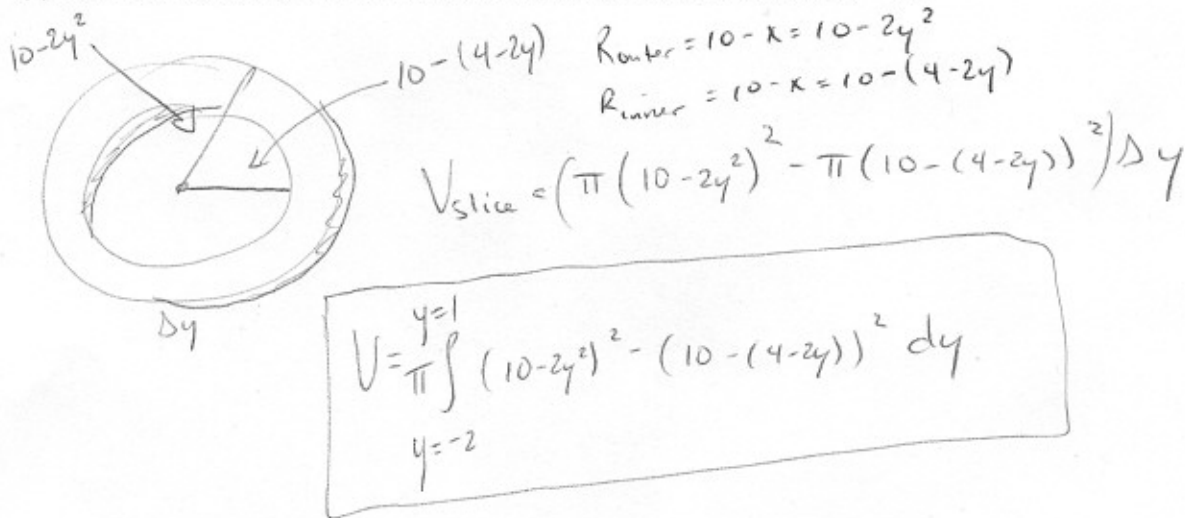 10-2y²
10-(4-2y)
R outer = 10-x = 10-2y²
R inner = 10-x = 10-(4-2y)
V slice = (π(10-2y²)² - π(10-(4-2y))²)Δy
Δy
y=1
V = π∫ (10-2y²)² - (10-(4-2y))² dy
y=-2